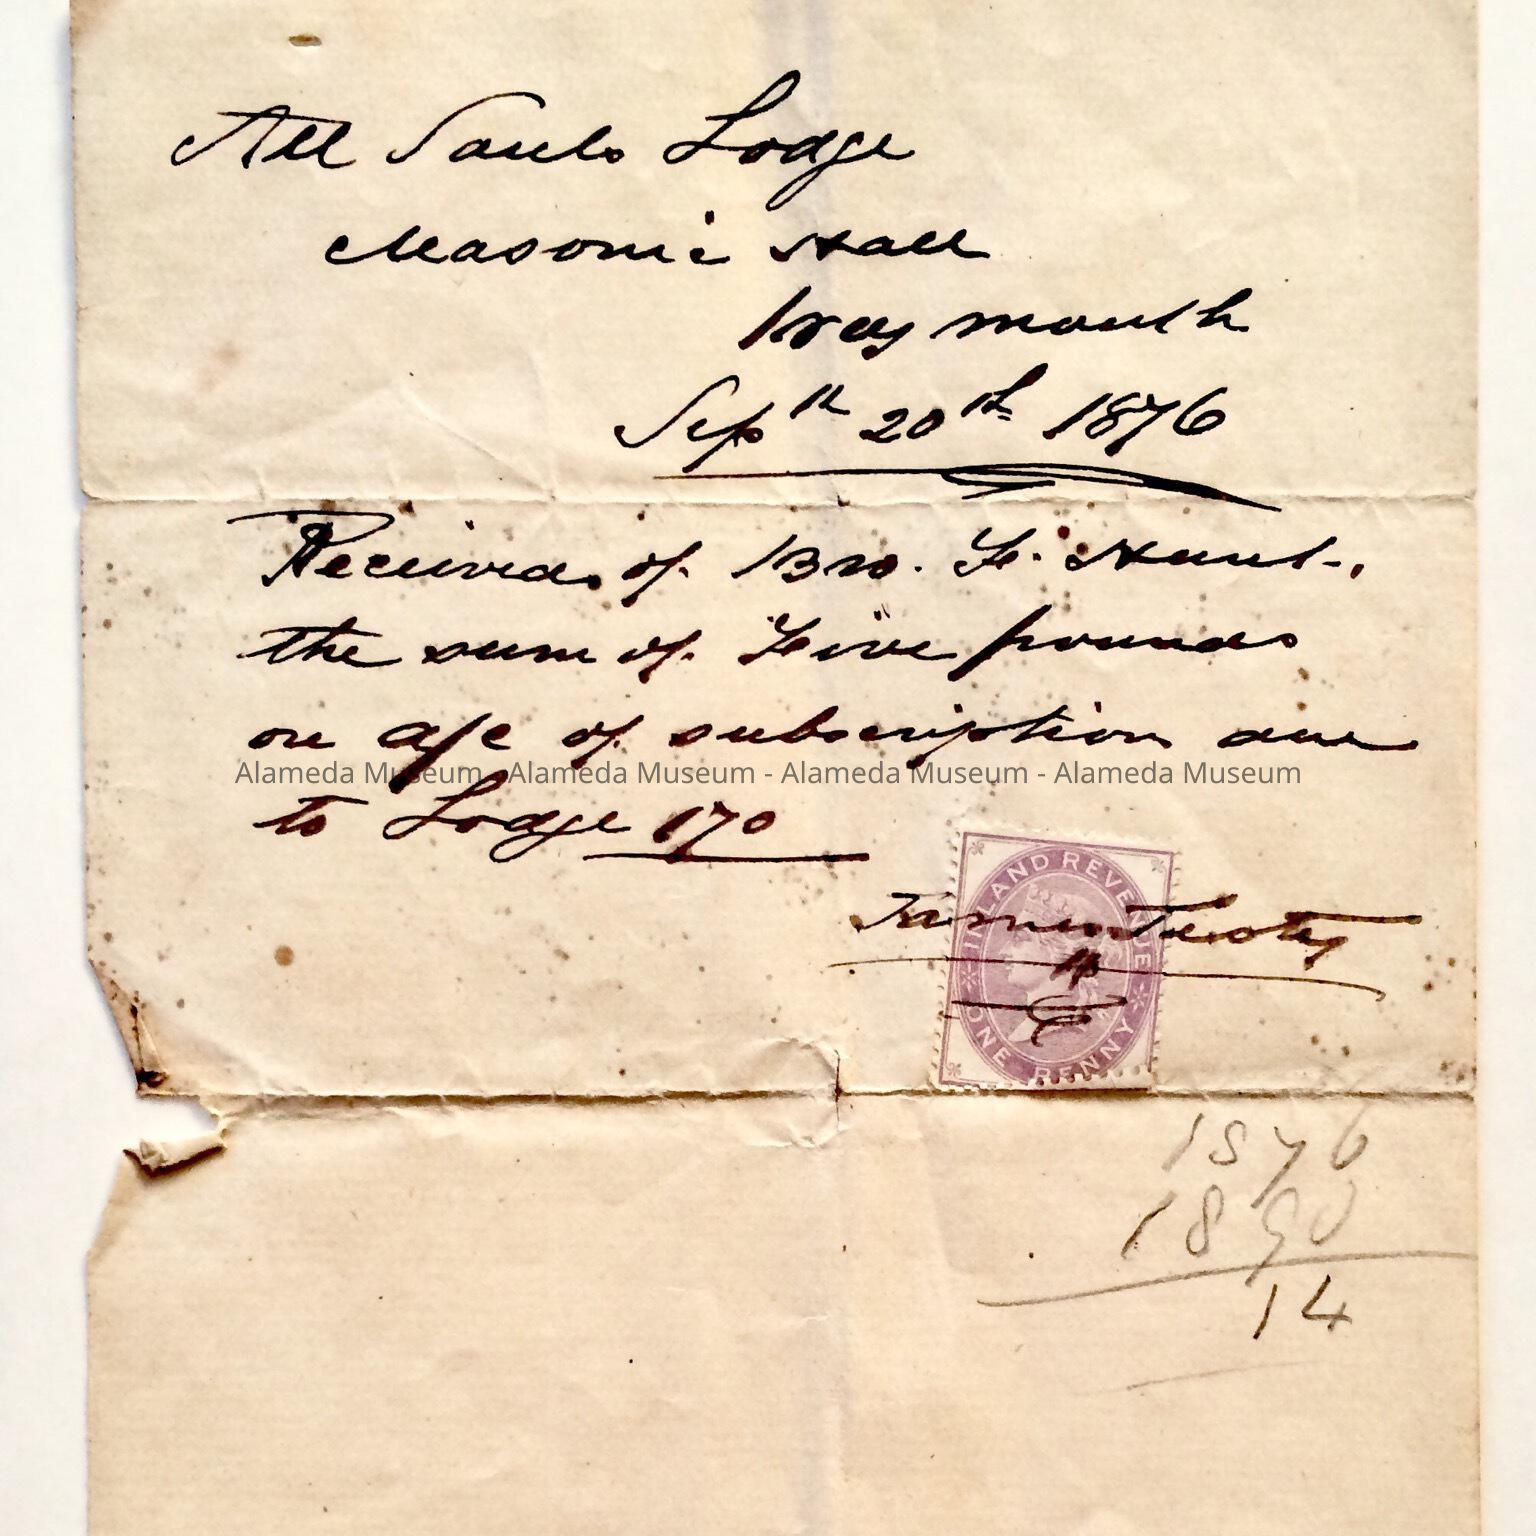 All Souls Lodge
Masonic Hall
Weymouth
Sepr 20th 1876
Received of Bro. F. Hunt.,
the sum of Five pounds
on a/c of subscription due
Alameda Museum - Alameda Museum - Alameda Museum - Alameda Museum
to Lodge 170
INLAND REVENUE
James
ONE PENNY
1876
1890
14